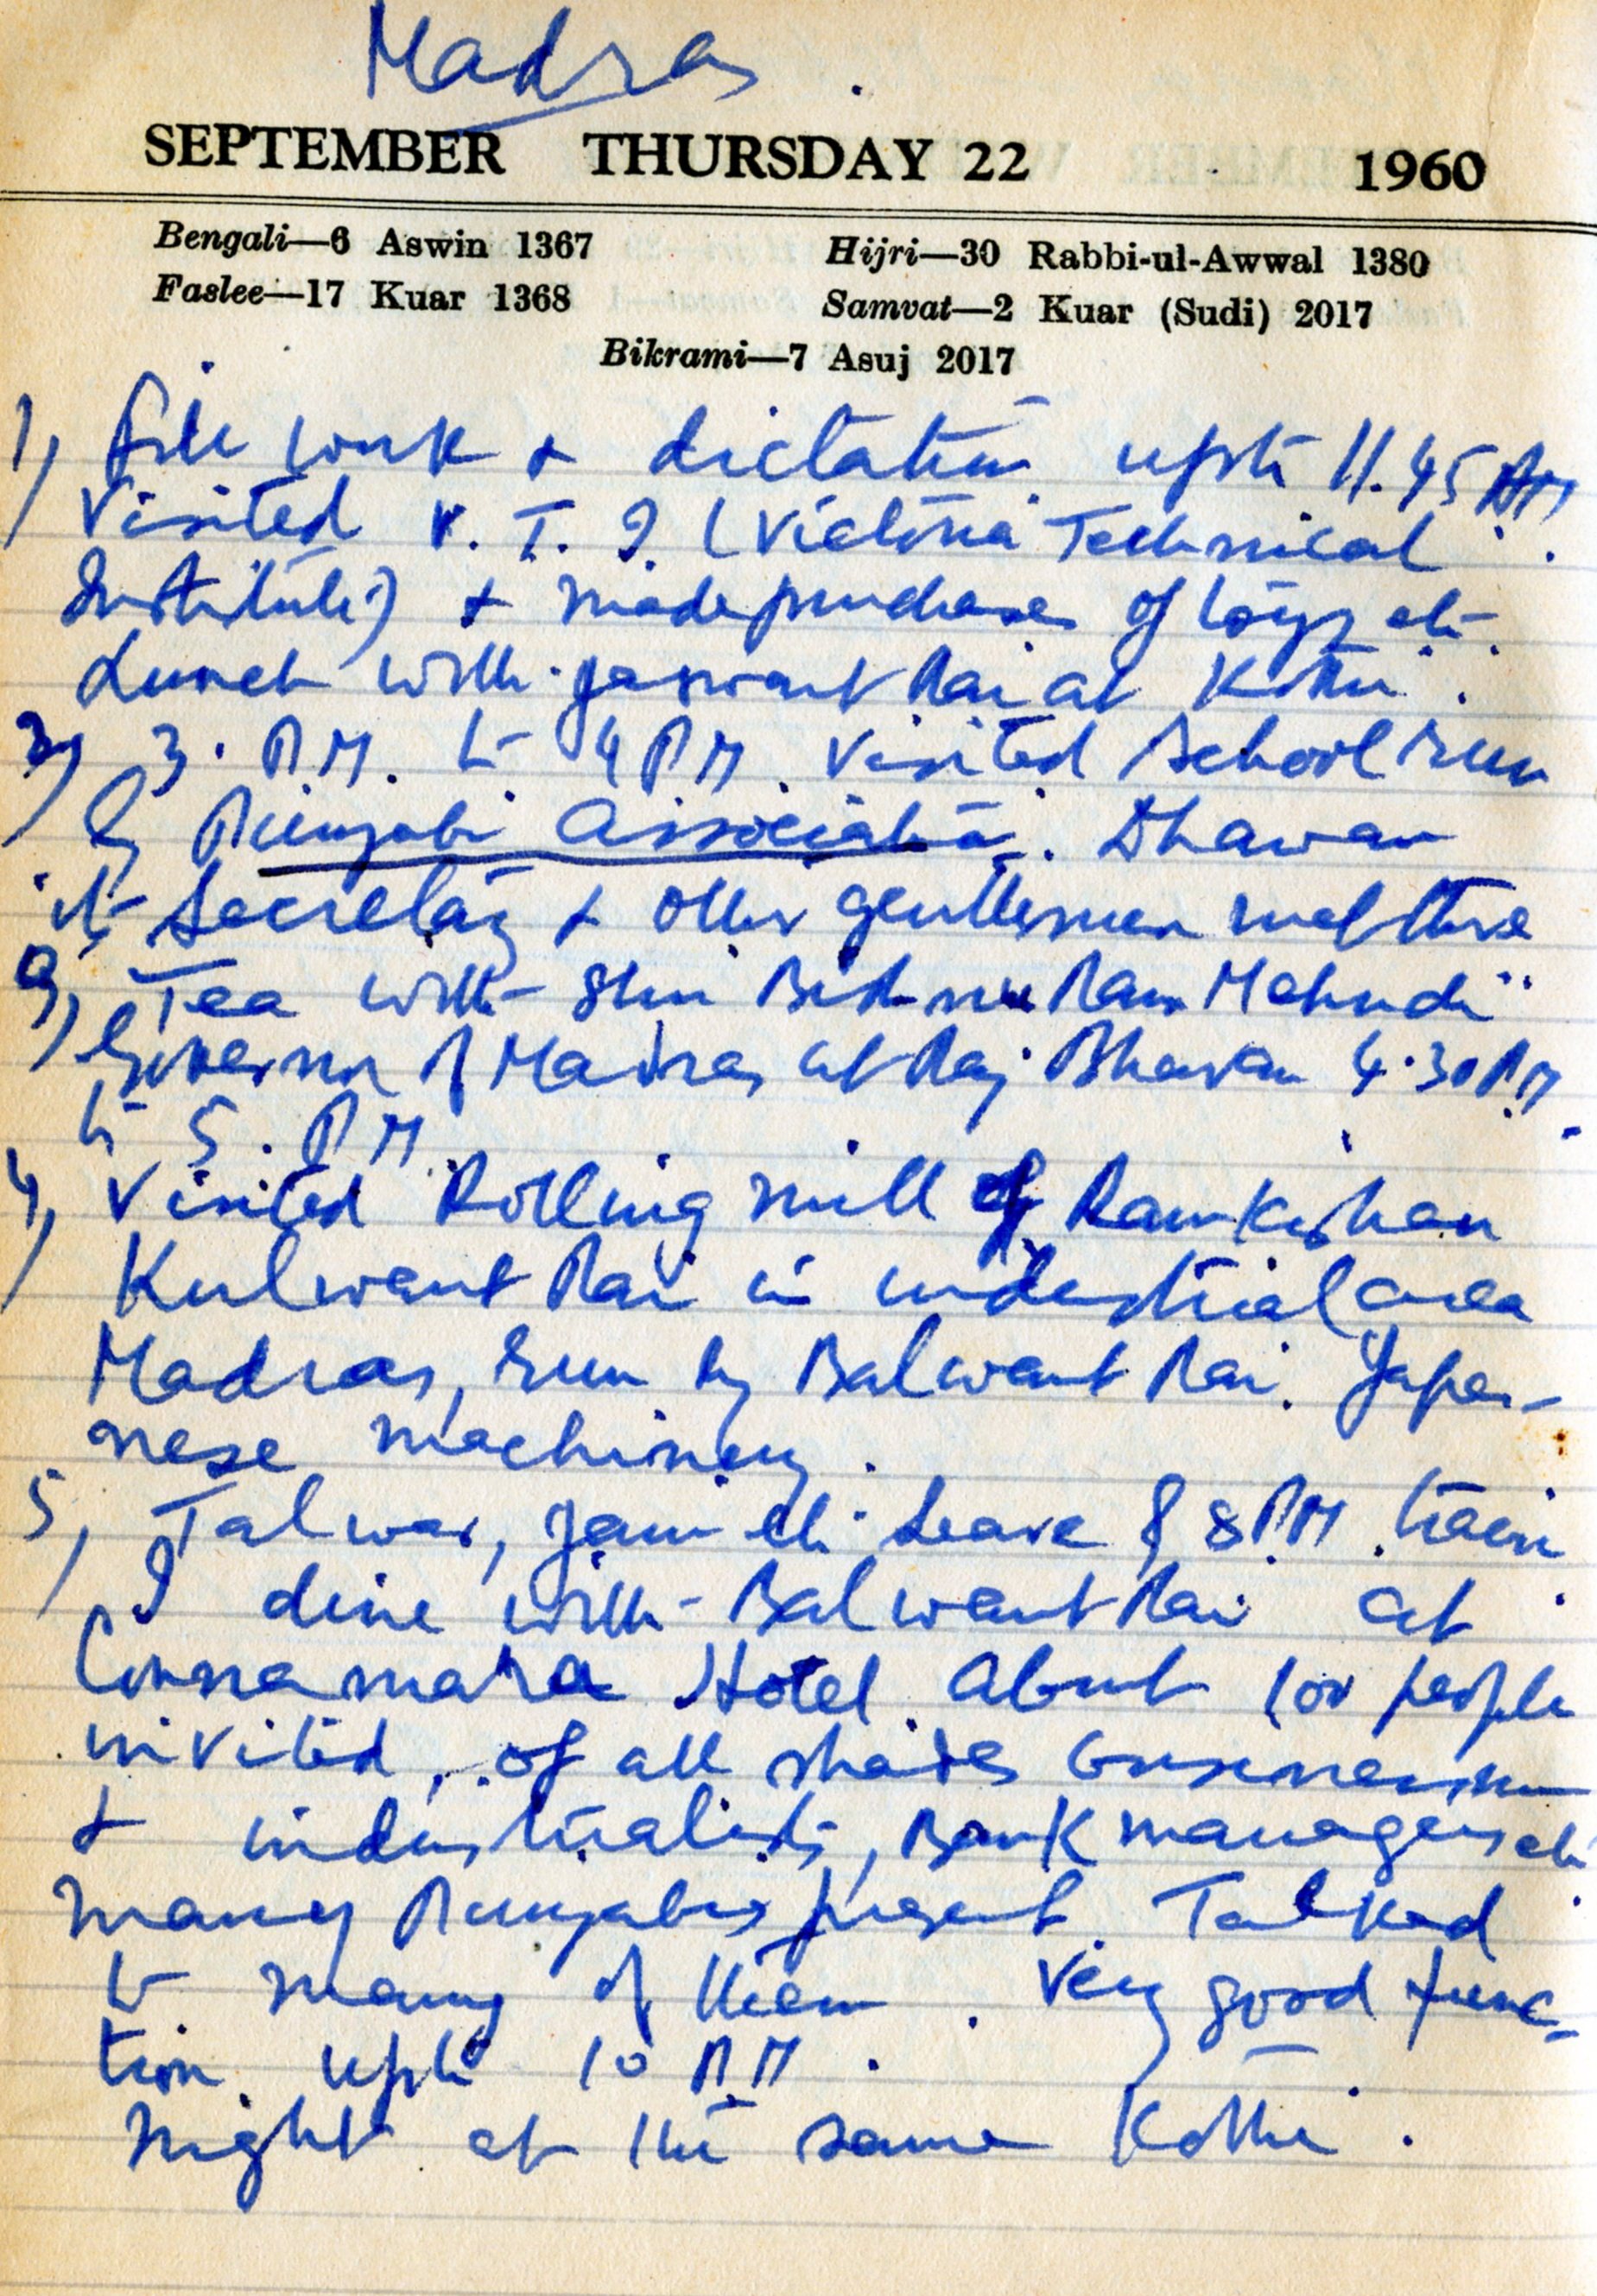 Madras.
SEPTEMBER THURSDAY 22 1960
Bengali—6 Aswin 1367 Hijri—30 Rabbi-ul-Awwal 1380
Faslee—17 Kuar 1368 Samvat—2 Kuar (Sudi) 2017
Bikrami—7 Asuj 2017
1) File work & dictation upto 11.45 AM.
Visited V. T. I. (Victoria Technical
Institute) & made purchases of toys etc.
Lunch with Jaswant Rai at Kothi.
2) 3. P.M. to 4 P.M. Visited School run
by Punjabi Association. Dhawan
its Secretary & other gentlemen met there
3) Tea with Shri Bishnu Ram Mehndi
Governor of Madras at Raj Bhavan 4.30 P.M.
to 5. P.M.
4) Visited Rolling mill of Ram Kishan
Kulwant Rai in industrial area
Madras, run by Balwant Rai. Japa-
nese machinery.
5) Talwar, Jain etc. leave by 8 P.M. train.
I dine with Balwant Rai at
Connamara Hotel. About 100 people
invited, of all shades businessmen
& industrialists, Bank managers etc.
many Punjabis present. Talked
to many of them. Very good func-
tion. upto 10 P.M.
Night at the same Kothi.